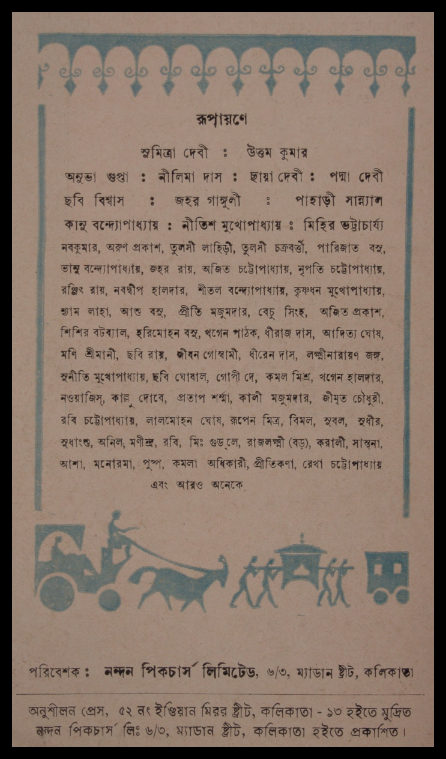 রূপায়ণে
সুমিত্রা দেবী : উত্তম কুমার
অনুভা গুপ্তা : নীলিমা দাস : ছায়া দেবী : পদ্মা দেবী
ছবি বিশ্বাস : জহর গাঙ্গুলী : পাহাড়ী সান্ন্যাল
কানু বন্দ্যোপাধ্যায় : নীতিশ মুখোপাধ্যায় : মিহির ভট্টাচার্য্য
নবকুমার, অরুণ প্রকাশ, তুলসী লাহিড়ী, তুলসী চক্রবর্ত্তী, পারিজাত বসু,
ভানু বন্দ্যোপাধ্যায়, জহর রায়, অজিত চট্টোপাধ্যায়, নৃপতি চট্টোপাধ্যায়,
রঞ্জিৎ রায়, নবদ্বীপ হালদার, শীতল বন্দ্যোপাধ্যায়, কৃষ্ণধন মুখোপাধ্যায়,
শ্যাম লাহা, আশু বসু, প্রীতি মজুমদার, বেচু সিংহ, অজিত প্রকাশ,
শিশির বটব্যাল, হরিমোহন বসু, খগেন পাঠক, ধীরাজ দাস, আদিত্য ঘোষ,
মণি শ্রীমানী, ছবি রায়, জীবন গোস্বামী, ধীরেন দাস, লক্ষ্মীনারায়ণ জঙ্গ,
সুনীতি মুখোপাধ্যায়, ছবি ঘোষাল, গোপী দে, কমল মিশ্র, খগেন হালদার,
নওয়াজিস্, কাল্লু দোবে, প্রতাপ শর্ম্মা, কালী মজুমদার, জীমূত চৌধুরী,
রবি চট্টোপাধ্যায়, লালমোহন ঘোষ, রূপেন মিত্র, বিমল, সুবল, সুধীর,
সুধাংশু, অনিল, মণীন্দ্র, রবি, মিঃ গুডুলে, রাজলক্ষ্মী (বড়), করালী, সান্ত্বনা,
আশা, মনোরমা, পুষ্প, কমলা অধিকারী, প্রীতিকণা, রেখা চট্টোপাধ্যায়
এবং আরও অনেকে
পরিবেশক : নন্দন পিকচার্স লিমিটেড, ৬/৩, ম্যাডান ষ্ট্রীট, কলিকাতা
অনুশীলন প্রেস, ৫২ নং ইণ্ডিয়ান মিরর ষ্ট্রীট, কলিকাতা - ১৩ হইতে মুদ্রিত
নন্দন পিকচার্স লিঃ ৬/৩, ম্যাডান ষ্ট্রীট, কলিকাতা হইতে প্রকাশিত।